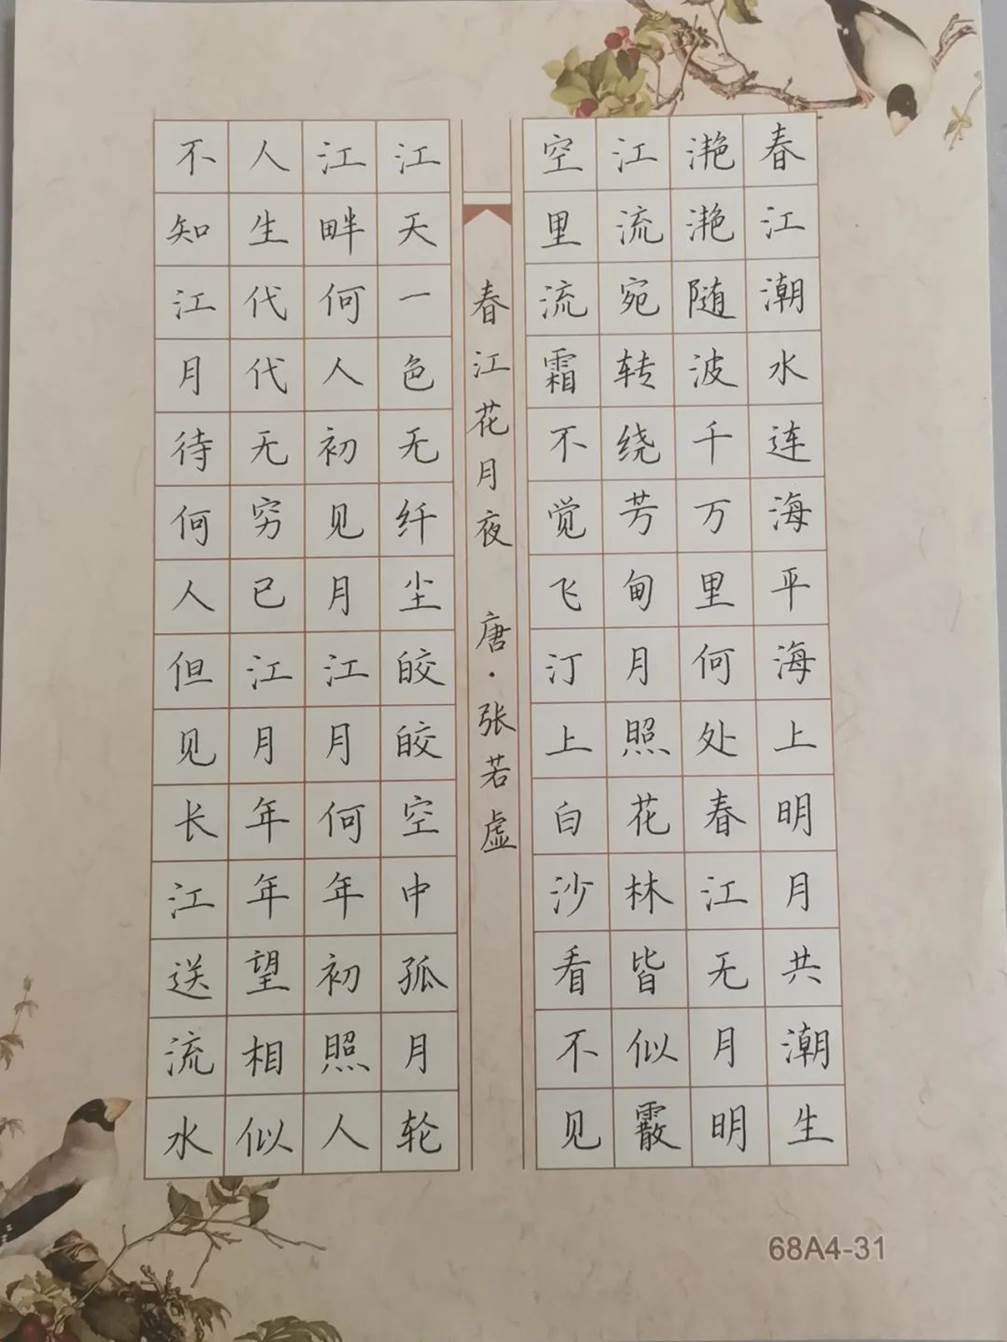 春江潮水连海平海上明月共潮生
滟滟随波千万里何处春江无月明
江流宛转绕芳甸月照花林皆似霰
空里流霜不觉飞汀上白沙看不见
春江花月夜 唐·张若虚
江天一色无纤尘皎皎空中孤月轮
江畔何人初见月江月何年初照人
人生代代无穷已江月年年望相似
不知江月待何人但见长江送流水
68A4-31